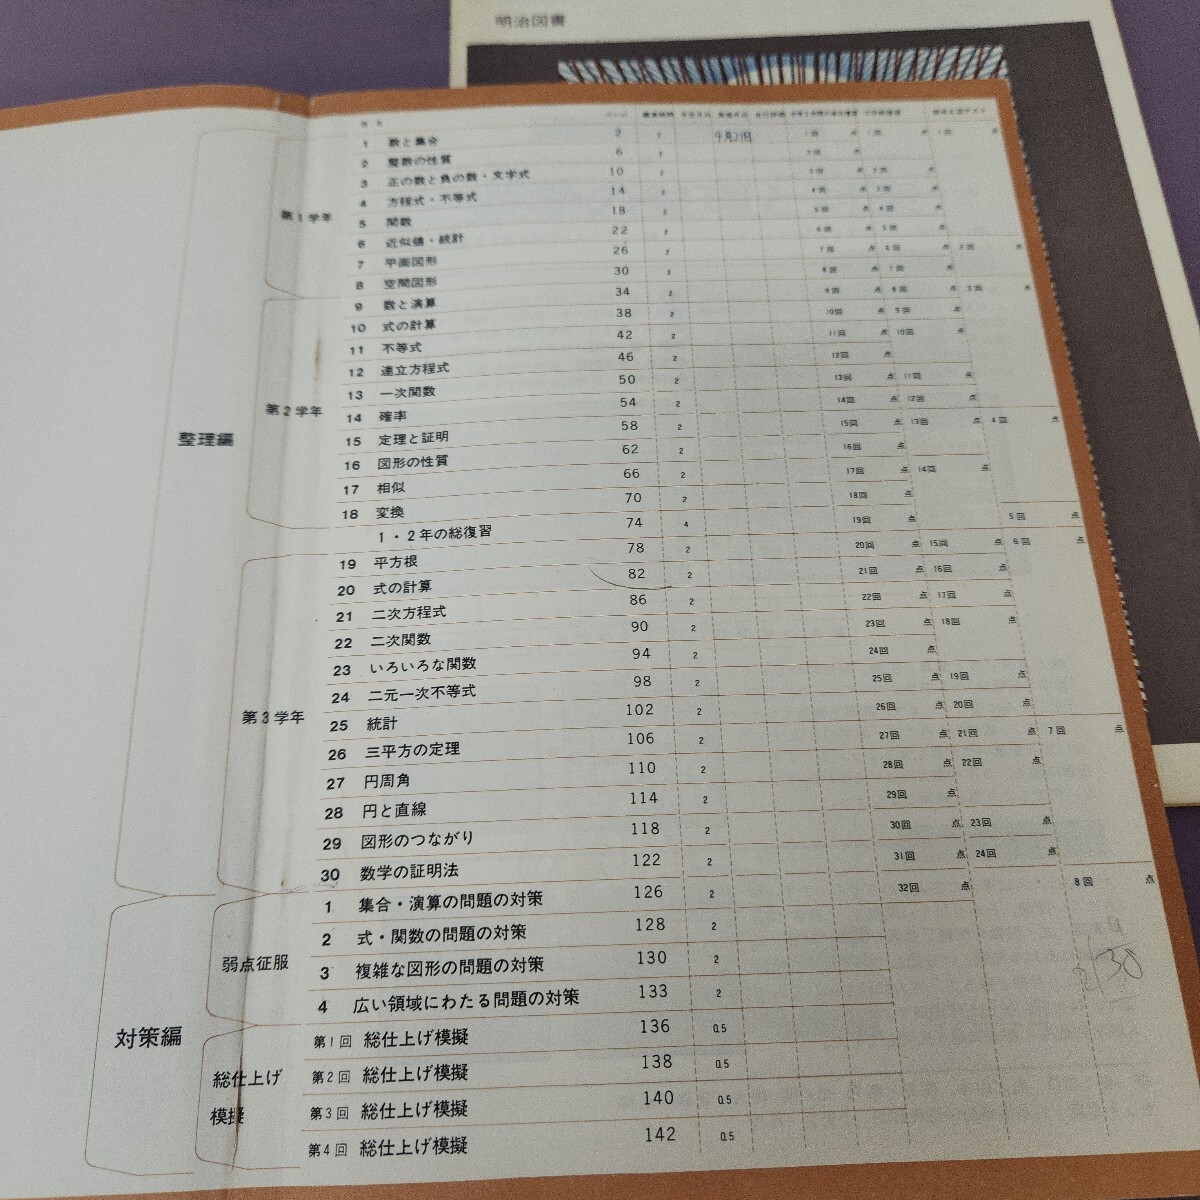 明治図書
1 数と集合 2 2 9月21日 1回 点 1回 点 1回 点
2 整数の性質 6 2 2回 点
3 正の数と負の数・文字式 10 2 3回 点 2回 点
4 方程式・不等式 14 2 4回 点 3回 点
第1学年
5 関数 18 2 5回 点 4回 点
6 近似値・統計 22 2 6回 点 5回 点
7 平面図形 26 2 7回 点 6回 点 2回 点
8 空間図形 30 2 8回 点 7回 点
9 数と演算 34 2 9回 点 8回 点 3回 点
10 式の計算 38 2 10回 点 9回 点
11 不等式 42 2 11回 点 10回 点
12 連立方程式 46 2 12回 点
13 一次関数 50 2 13回 点 11回 点
第2学年
14 確率 54 2 14回 点 12回 点
整理編
15 定理と証明 58 2 15回 点 13回 点 4回 点
16 図形の性質 62 2 16回 点
17 相似 66 2 17回 点 14回 点
18 変換 70 2 18回 点
1・2年の総復習 74 4 19回 点 5回 点
19 平方根 78 2 20回 点 15回 点 6回 点
20 式の計算 82 2 21回 点 16回 点
21 二次方程式 86 2 22回 点 17回 点
22 二次関数 90 2 23回 点 18回 点
23 いろいろな関数 94 2 24回 点
24 二元一次不等式 98 2 25回 点 19回 点
第3学年
25 統計 102 2 26回 点 20回 点
26 三平方の定理 106 2 27回 点 21回 点 7回 点
27 円周角 110 2 28回 点 22回 点
28 円と直線 114 2 29回 点
29 図形のつながり 118 2 30回 点 23回 点
30 数学の証明法 122 2 31回 点 24回 点
1 集合・演算の問題の対策 126 2 32回 点 8回 点
2 式・関数の問題の対策 128 2
弱点征服
3 複雑な図形の問題の対策 130 2
4 広い領域にわたる問題の対策 133 2
対策編
第1回 総仕上げ模擬 136 0.5
総仕上げ
模擬
第2回 総仕上げ模擬 138 0.5
第3回 総仕上げ模擬 140 0.5
第4回 総仕上げ模擬 142 0.5